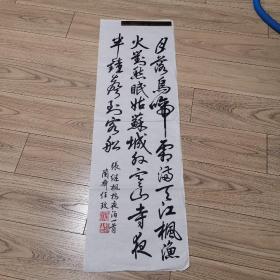 月落烏啼霜滿天江楓漁
火對愁眠姑蘇城外寒山寺夜
半鐘聲到客船
張繼楓橋夜泊一首
蘭齋任政